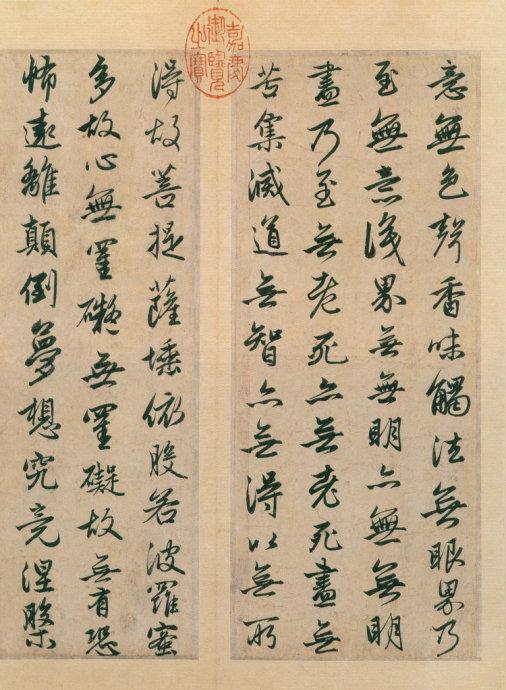 意無色聲香味觸法無眼界乃
至無意識界無無明亦無無明
盡乃至無老死亦無老死盡無
苦集滅道無智亦無得以無所
嘉慶御覽之寶
得故菩提薩埵依般若波羅蜜
多故心無罣礙無罣礙故無有恐
怖遠離顛倒夢想究竟涅槃